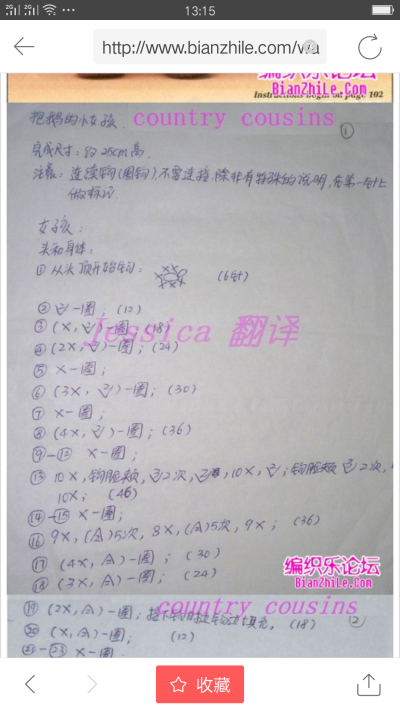 13:15
http://www.bianzhile.com/wa
编织乐论坛
BianZhiLe.com
Instructions begin on page 102
抱鹅的小女孩. country cousins ①
完成尺寸: 约25cm高.
注意: 连续钩(圈钩),不需连接,除非有特殊的说明,在第一针上
做标记.
女孩:
头和身体:
① 从头顶开始钩: (6针)
② 一圈; (12)
③ (X, )一圈; (18)
Jessica 翻译
④ (2X, )一圈; (24)
⑤ X一圈;
⑥ (3X, )一圈; (30)
⑦ X一圈;
⑧ (4X, )一圈; (36)
⑨-⑫ X一圈;
⑬ 10X, 钩脸颊, 2次, 10X, ; 钩脸颊 2次,
10X; (46)
⑭-⑮ X一圈;
⑯ 9X, ( )5次, 8X, ( )5次, 9X; (36)
⑰ (4X, )一圈; (30)
⑱ (3X, )一圈; (24)
编织乐论坛
BianZhiLe.com
country cousins
⑲ (2X, )一圈; 填充. (18) ②
⑳ (X, )一圈; (12)
㉑-㉓ X一圈
收藏